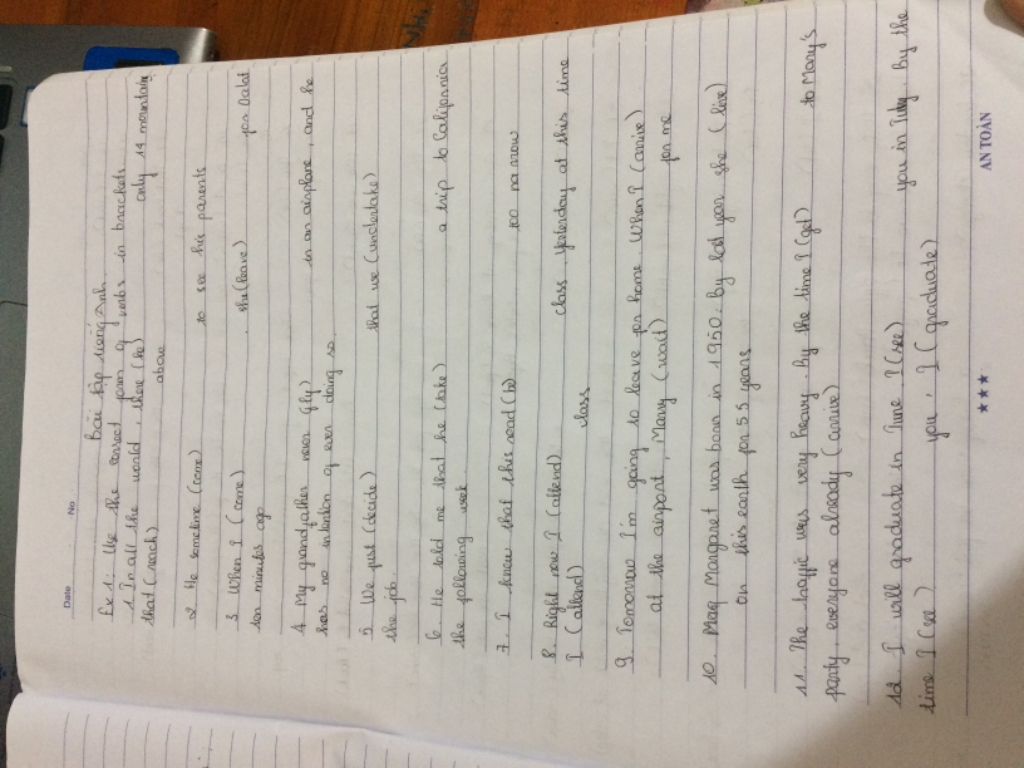 Date No
Bài tập tiếng anh.
Ex 1: Use the correct form of verbs in brackets
1 In all the world, there (be) only 14 mountain
that (reach) above
2 He sometime (come) to see his parents
3 When I (come) she (leave) for Dalat
ten minutes ago
4 My grandfather never (fly) in an airplane, and he
has no intention of ever doing so.
5 We just (decide) that we (undertake)
the job.
6 He told me that he (take) a trip to California
the following week
7. I knew that this road (be) too narrow
8 Right now I (attend) class yesterday at this time
I (attend) class
9 Tomorrow I'm going to leave for home. When I (arrive)
at the airport, Mary (wait) for me
10. Margaret was born in 1950. By last year she (live)
on this earth for 55 years
11. The traffic was very heavy. By the time I (get) to Mary's
party, everyone already (arrive)
12 I will graduate in June. I (see) you in July. By the
time I (see) you, I (graduate)
★★★ AN TOÀN